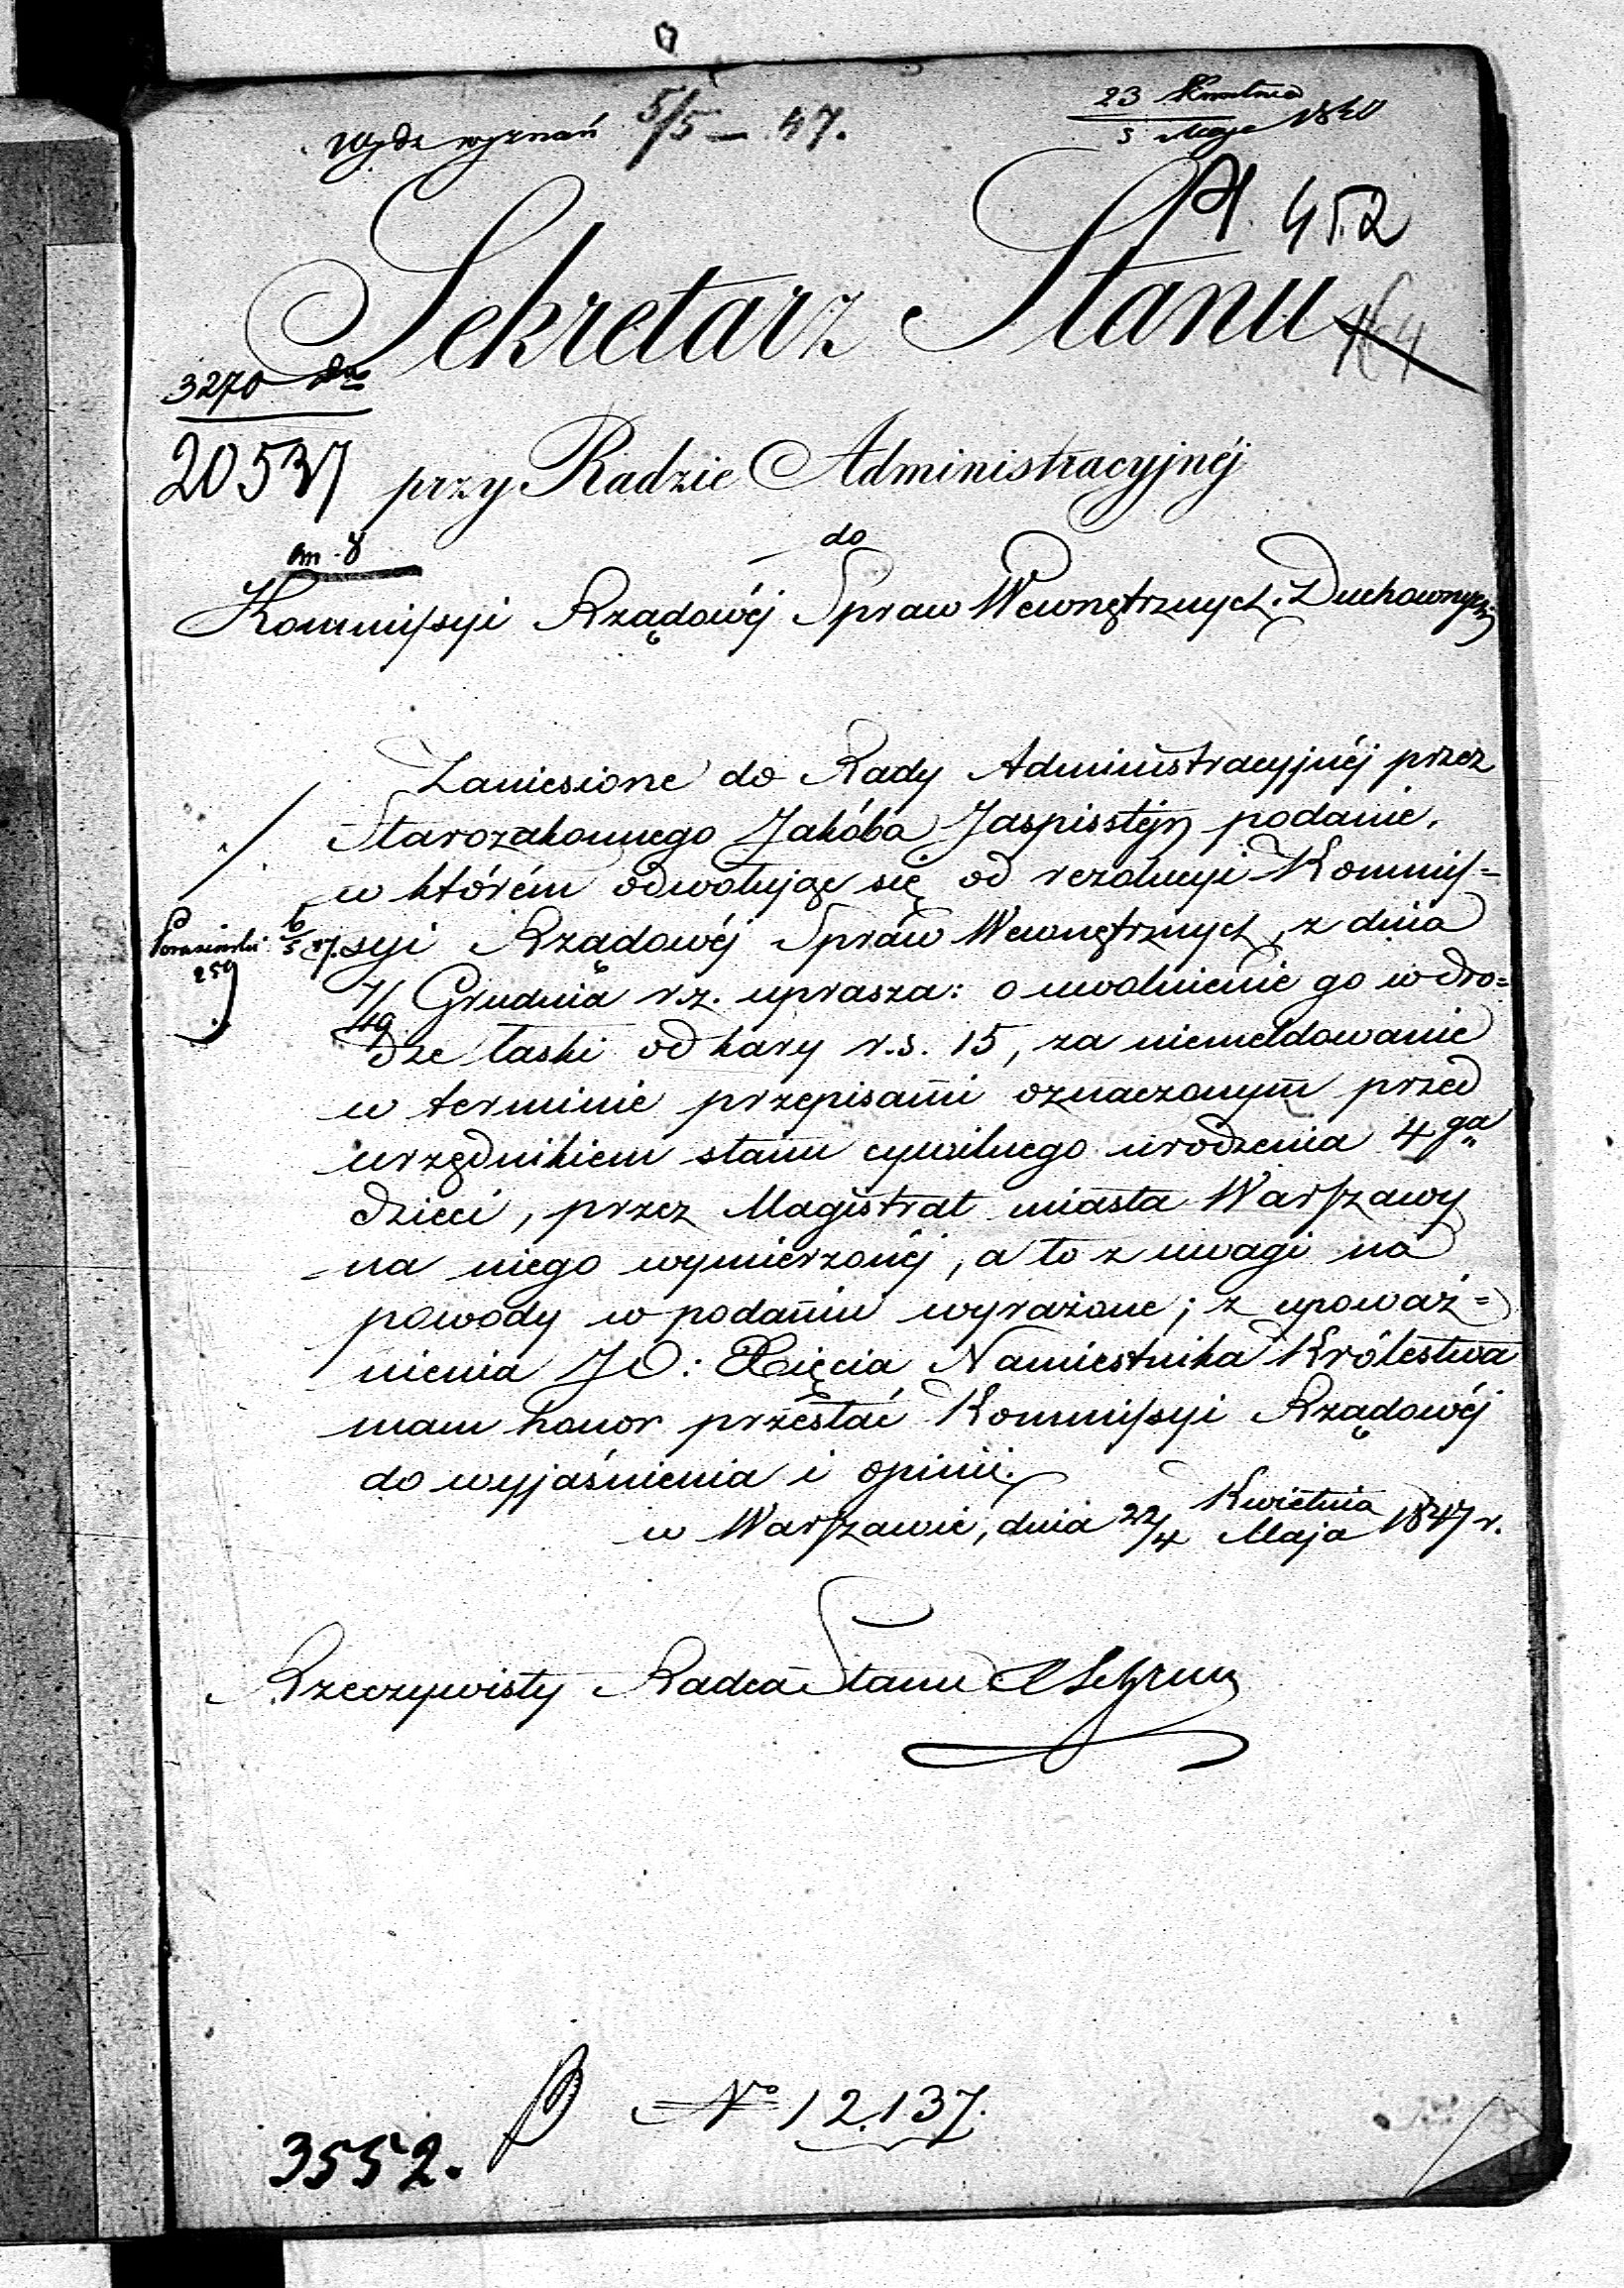 Wydz wyznań 5/5 – 47.
23 Kwietnia
5 Maja
452
Sekretarz Stanu
3270
20537
przy Radzie Administracyjnéj
do
Kommissyi Rządowéj Spraw Wewnętrznych i Duchownych
Zaniesione do Rady Administracyjnéj przez
Starozakonnego Jakóba Jaspisstejn podanie,
w którém odwołując się od rezolucyi Kommis=
syi Rządowéj Spraw Wewnętrznych, z dnia
7/19 Grudnia r.z. uprasza: o uwolnienie go w dro=
dze łaski od kary r.s. 15, za niemeldowanie
w terminie przepisami oznaczonym przed
urzędnikiem stanu cywilnego urodzenia 4ga
dzieci, przez Magistrat miasta Warszawy
na niego wymierzonéj, a to z uwagi na
powody w podaniu wyrażone; z upoważ=
nienia JO: Xięcia Namiestnika Królestwa
mam honor przesłać Kommissyi Rządowéj
do wyjaśnienia i opinii.
w Warszawie, dnia 22/4 Kwietnia Maja 1847 r.
Rzeczywisty Radca Stanu
No 12,137.
3552.